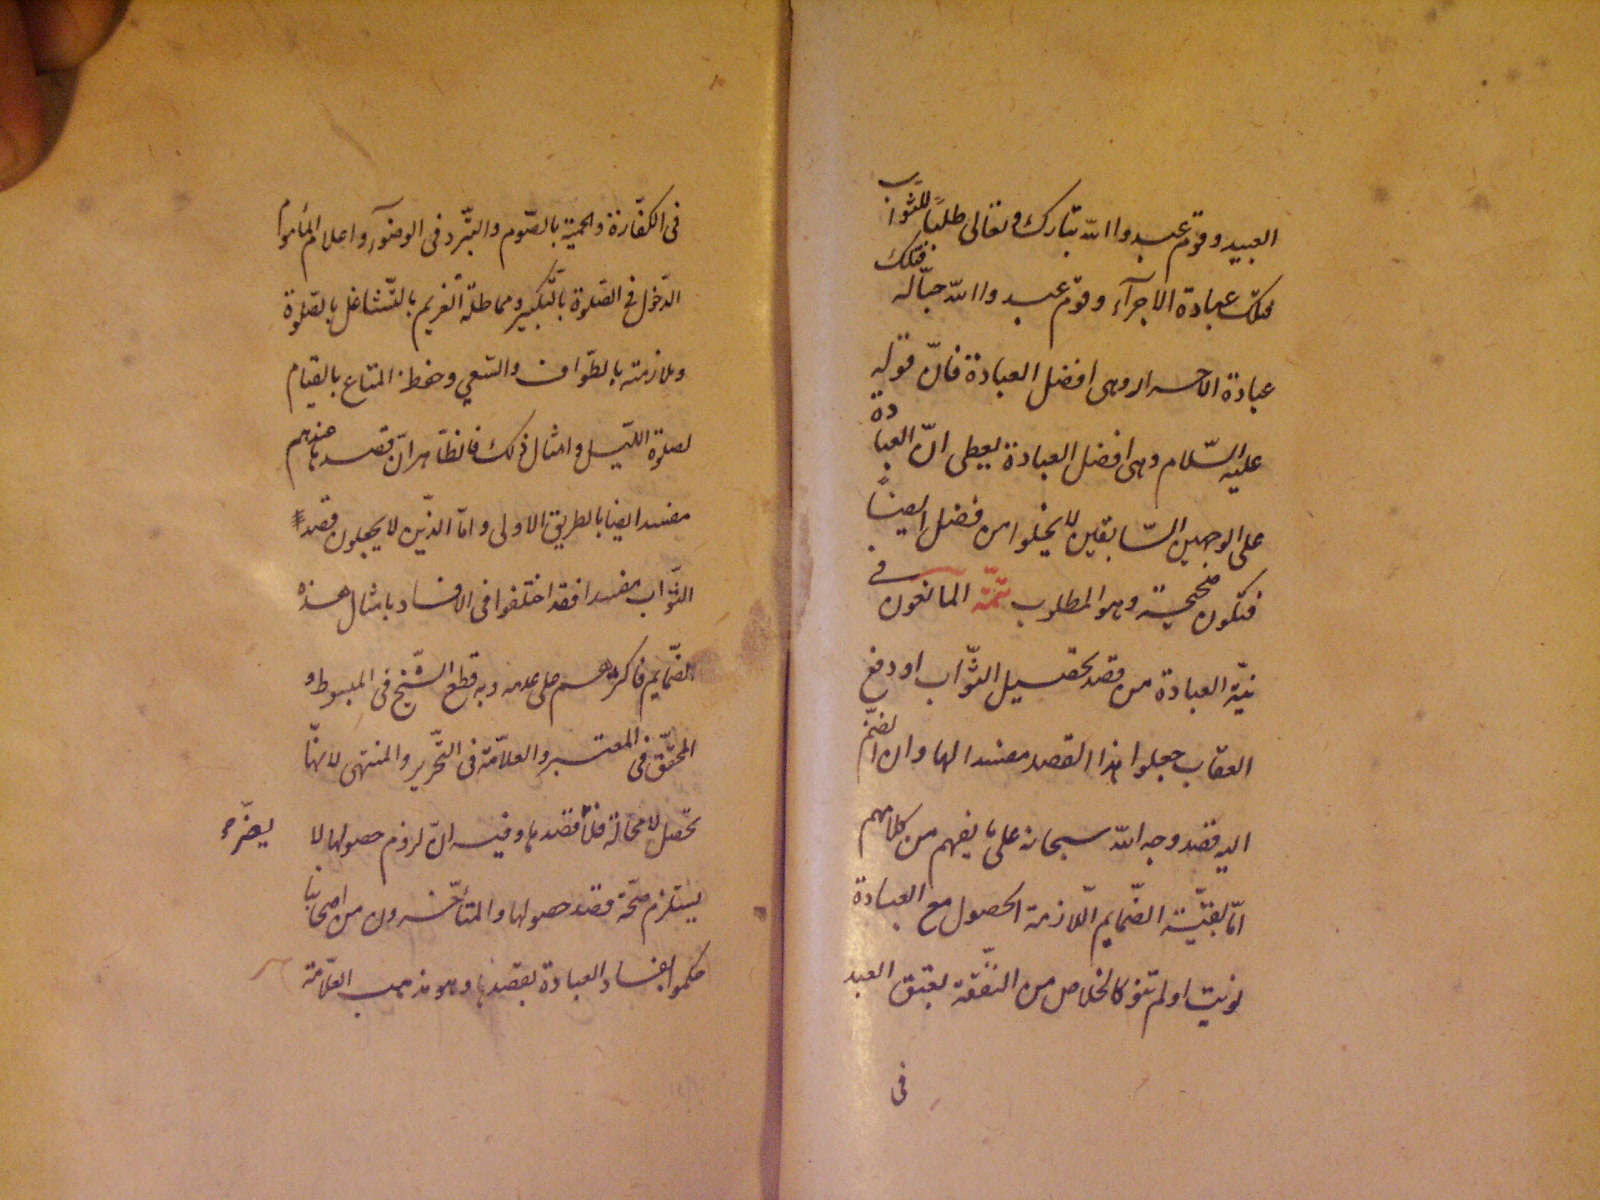 العبيد وقوم عبدوا الله تبارك وتعالى طلبًا للثواب
فتلك عبادة الاجرآء وقوم عبدوا الله حبّاله فتلك
عبادة الاحرار وهى افضل العبادة فانّ قوله
عليه السّلام وهى افضل العبادة يعطى انّ العبادة
على الوجهين السّابقين لا يخلوا من فضل ايضًا
فتكون صحيحة وهو المطلوب تتمّة المانعون فى
نيّة العبادة من قصد تحصيل الثّواب او دفع
العقاب جعلوا هذا القصد مفسدا لها وان انضمّ
اليه قصد وجه الله سبحانه على ما يفهم من كلامهم
امّا بقيّة الضّمايم اللّازمة الحصول مع العبادة
نويت او لم تنو كالخلاص من النّفقة بعتق العبد
فى
فى الكفّارة والحمية بالصّوم والتّبرّد فى الوضوء واعلام المأموم
الدّخول فى الصّلوة بالتّكبير ومماطلة الغريم بالتّشاغل بالصّلوة
وملازمته بالطّواف والسّعى وحفظ المتاع بالقيام
لصلوة اللّيل وامثال ذلك فالظّاهر انّ قصدها عندهم
مفسد ايضا بالطريق الاولى وامّا الذّين لا يجعلون قصد
الثّواب مفسدا فقد اختلفوا فى الافساد بامثال هذه
الضّمايم فاكثرهم على عدمه وبه قطع الشّيخ فى المبسوط و
المحقّق فى المعتبر والعلّامة فى التّحرير والمنتهى لانّها
تحصل لا محالة فلا يضرّ قصدها وفيه انّ لزوم حصولها لا
يستلزم صحّة قصد حصولها والمتأخّرون من اصحابنا
حكموا بفساد العبادة بقصدها وهو مذهب العلّامة